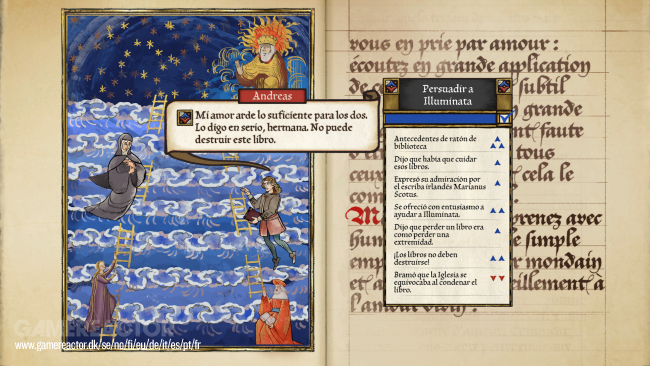 Andreas
Mi amor arde lo suficiente para los dos.
Lo digo en serio, hermana. No puede
destruir este libro.
Persuadir a
Illuminata
Antecedentes de ratón de
biblioteca
Dijo que había que cuidar
esos libros.
Expresó su admiración por el
escriba irlandés Marianus
Scotus.
Se ofreció con entusiasmo a
ayudar a Illuminata.
Dijo que perder un libro era
como perder una
extremidad.
¡Los libros no deben
destruirse!
Bramó que la Iglesia se
equivocaba al condenar el
libro.
vous en prie par amour :
écoutez en grande application
subtil
grande
faute
tous
cela le
prenez avec
simple
mondain
et
l'amour
GAMEREACTOR
www.gamereactor.dk/se/no/fi/eu/de/it/es/pt/fr